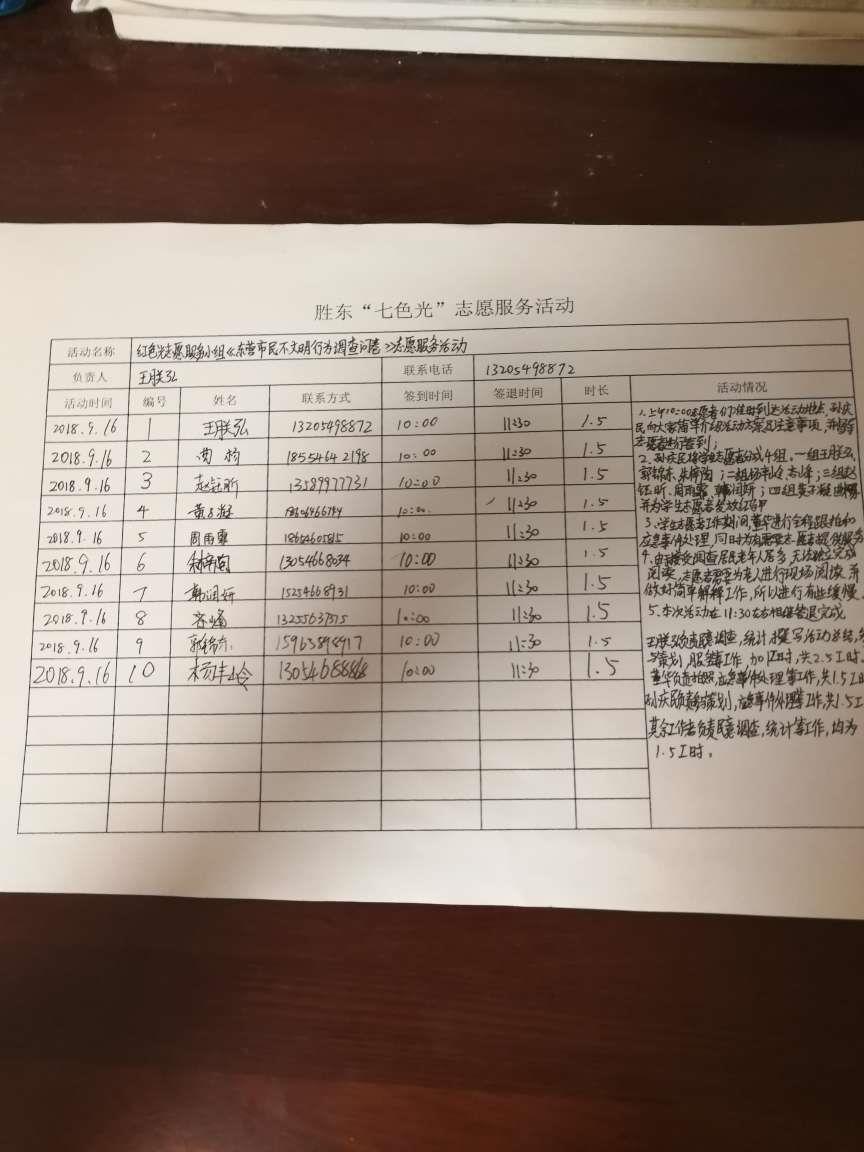 胜东“七色光”志愿服务活动
活动名称 红色光志愿服务小组《东营市民不文明行为调查问卷》志愿服务活动
负责人 王朕弘 联系电话 13205498872
活动时间 编号 姓名 联系方式 签到时间 签退时间 时长 活动情况
2018.9.16 1 王朕弘 13205498872 10:00 11:30 1.5
2018.9.16 2 18554642198 10:00 11:30 1.5
2018.9.16 3 赵钰昕 13589977731 10:00 11:30 1.5
2018.9.16 4 黄子凝 10:00 11:30 1.5
2018.9.16 5 周雨霏 18654605815 10:00 11:30 1.5
2018.9.16 6 13054668034 10:00 11:30 1.5
2018.9.16 7 韩润妍 15254668931 10:00 11:30 1.5
2018.9.16 8 13255637515 10:00 11:30 1.5
2018.9.16 9 郭锦东 15963898917 10:00 11:30 1.5
2018.9.16 10 杨丰岭 10:00 11:30 1.5
1.上午10:00志愿者们准时到达活动地点,孙庆
民向大家简单介绍活动方案及注意事项,并指导
志愿者进行签到;
2、孙庆民将学生志愿者分成4组,一组王朕弘,
郭锦东、;二组杨丰岭、;三组赵
钰昕、周雨霏、韩润妍;四组黄子凝
并为学生志愿者发放红马甲
3、学生志愿者工作期间,董华进行全程跟拍和
应急事件处理,同时为有需要志愿者提供服务
4、由于接受调查居民老年人居多,无法独立完成
阅读,志愿者需要为老人进行现场阅读,并
做好简单解释工作,所以进行有些缓慢.
5、本次活动在11:30左右相继签退完成
王朕弘负责民意调查,统计,撰写活动总结,参
与策划,服务等工作,加1工时,共2.5工时.
董华负责拍照,应急事件处理等工作,共1.5工时
孙庆民负责参与策划,应急事件处理等工作,共1.5工
其余工作者负责民意调查,统计等工作,均为
1.5工时。